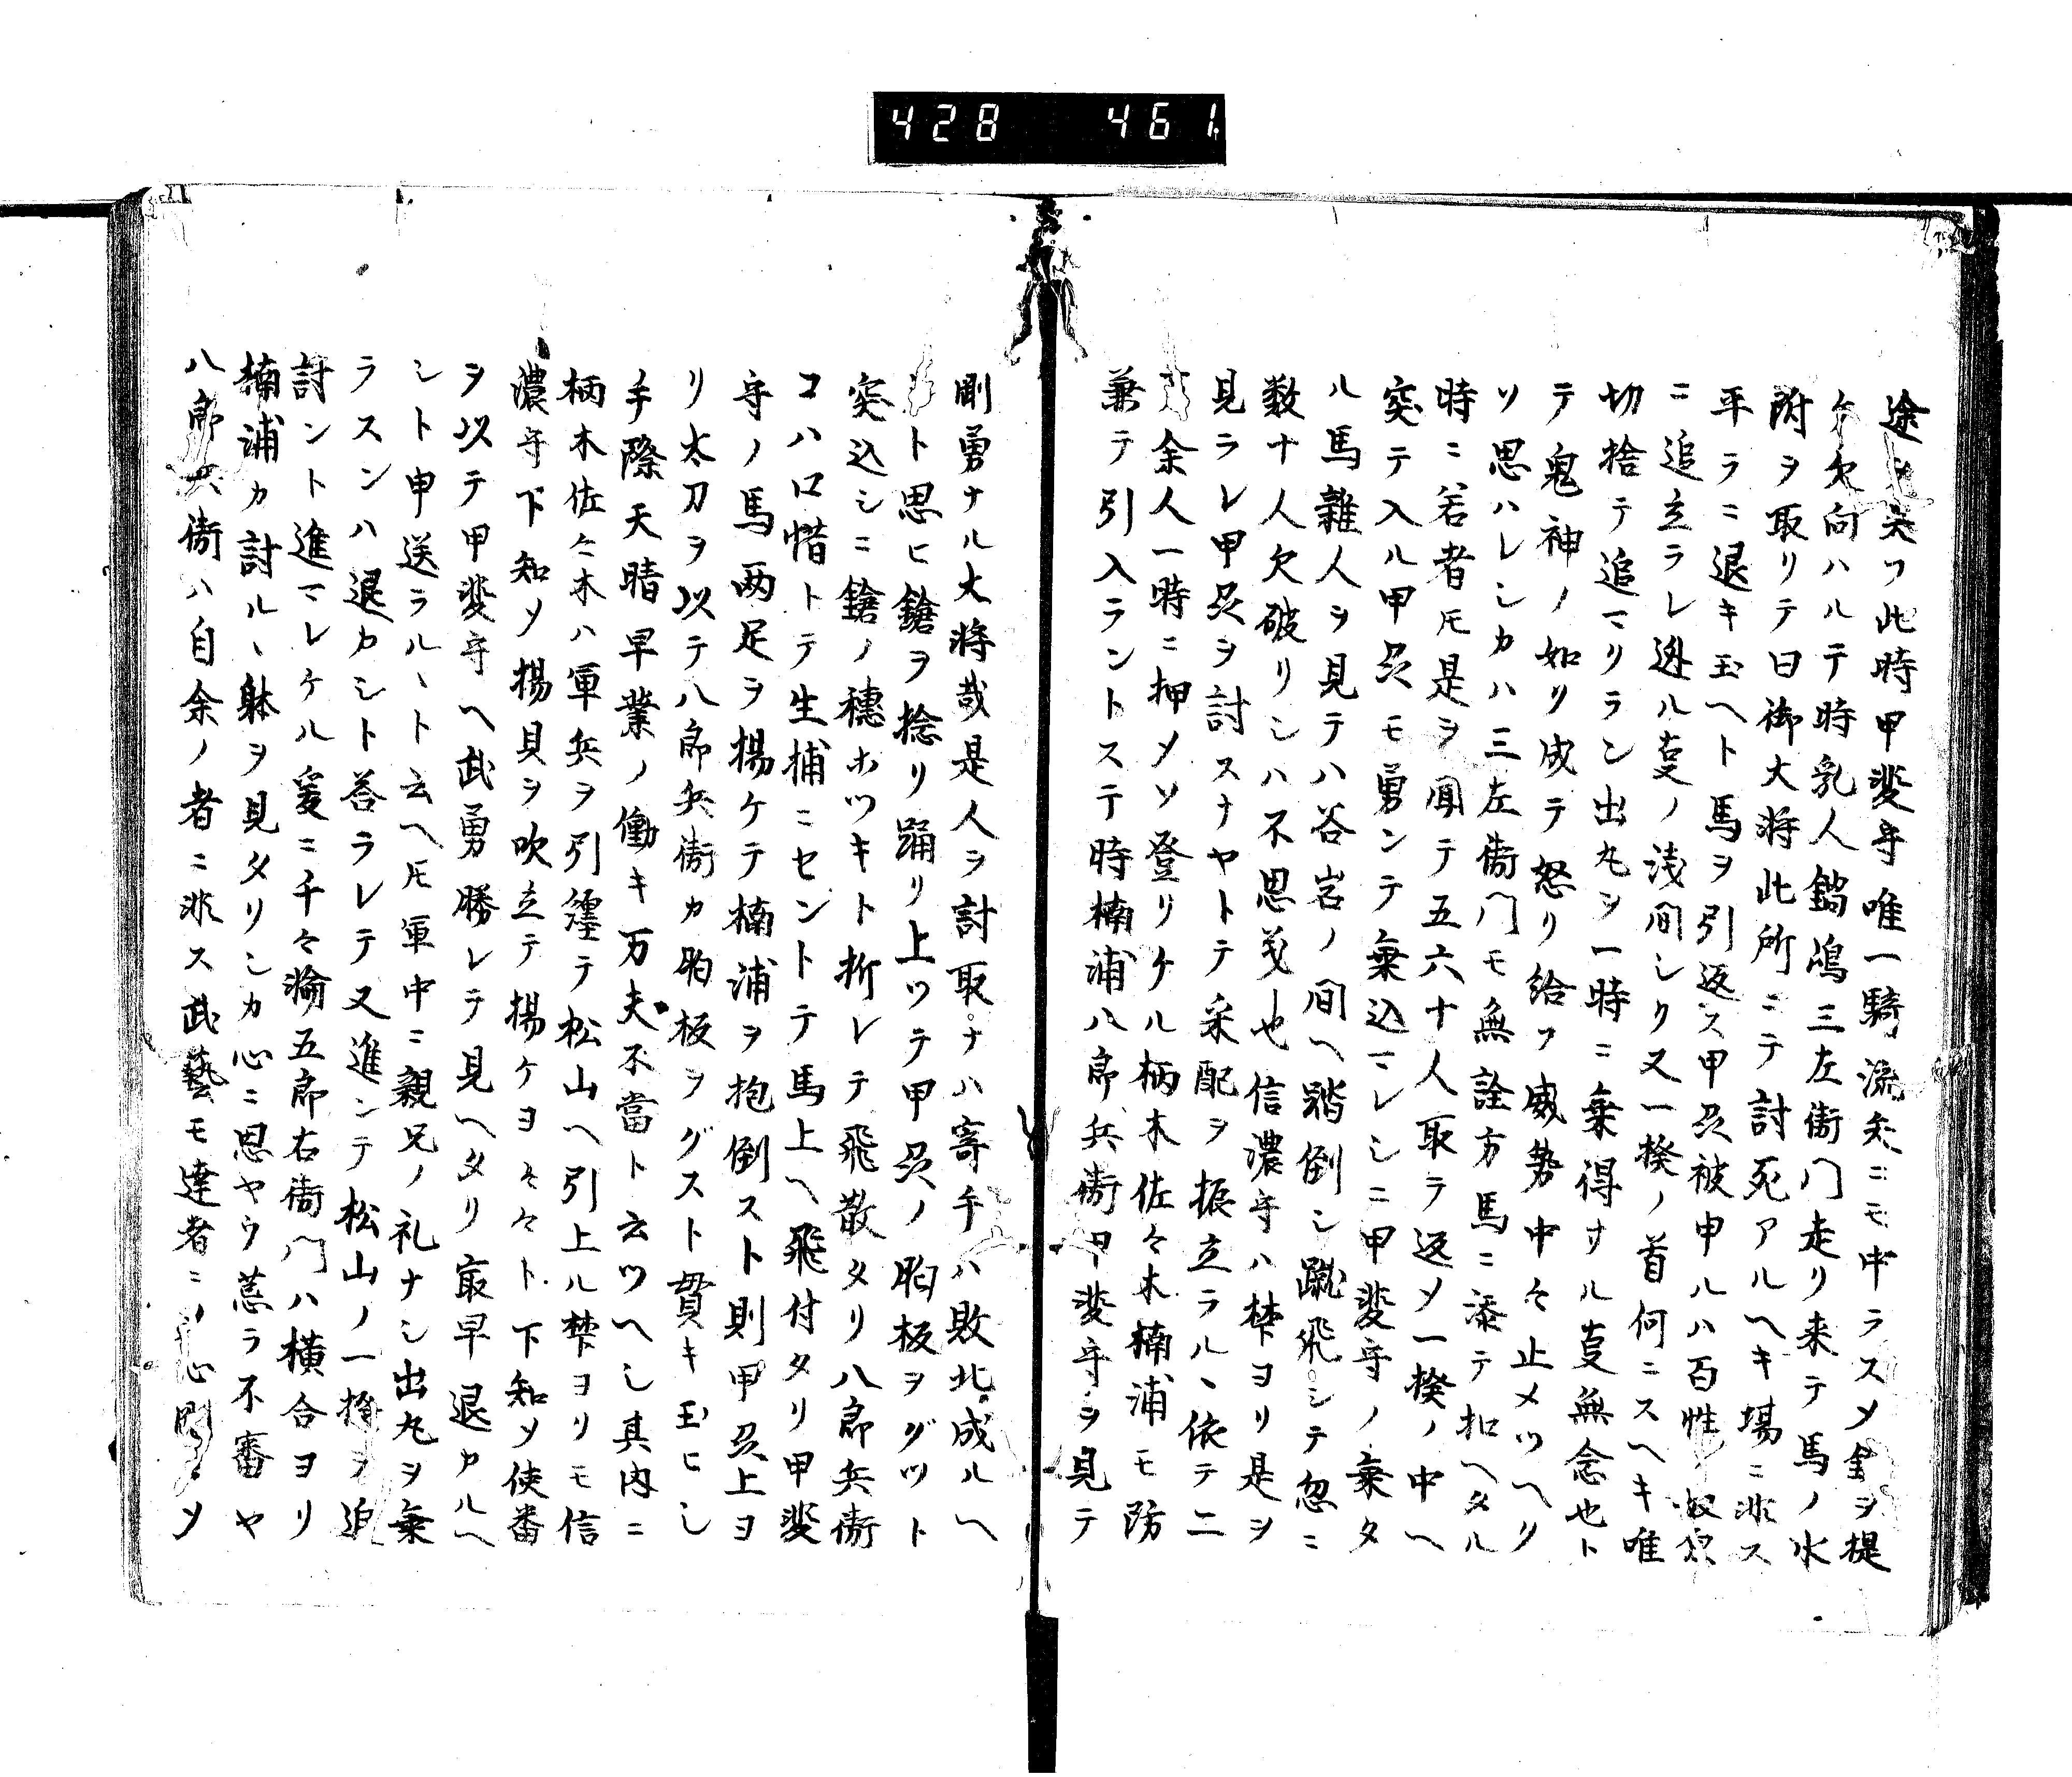 428 461
途ニ失フ此時甲斐守唯一騎流矢ニモ中ラスメ剣ヲ提
ケ欠向ハルテ時乳人鍋嶋三左衛門走リ来テ馬ノ水
附ヲ取リテ曰御大将此所ニテ討死アルヘキ場ニ非ス
平ラニ退キ玉ヘト馬ヲ引返ス甲斐被申ルハ百性奴原
ニ追立ラレ逃ル支ノ浅間シク又一揆ノ首何ニスヘキ唯
切捨テ追マリラン出丸ヲ一時ニ乗得ナル支無念也ト
テ鬼神ノ如リ成テ怒リ給フ威勢中々止メツヘク
ソ思ハレシカハ三左衛門モ無詮方馬ニ添テ扣ヘタル
時ニ若者𪜈是ヲ聞テ五六十人取ラ返メ一揆ノ中ヘ
突テ入ル甲斐モ勇ンテ乗込マレシニ甲斐守ノ乗タ
ル馬雑人ヲ見テハ谷岩ノ間ヘ踏倒シ蹴飛シテ忽ニ
数十人欠破リシハ不思儀也信濃守ハ梺ヨリ是ヲ
見ラレ甲斐ヲ討スナヤトテ采配ヲ振立ラル、依テ二
万余人一時ニ押メソ登リケル柄木佐々木楠浦モ防
兼テ引入ラントステ時楠浦八郎兵衛甲斐守ヲ見テ
剛勇ナル大将哉是人ヲ討取ナハ寄手ハ敗北成ルヘ
シト思ヒ鎗ヲ捻リ踊リ上ツテ甲斐ノ胸板ヲグツト
突込シニ鎗ノ穂ホツキト折レテ飛散タリ八郎兵衛
コハ口惜トテ生捕ニセントテ馬上ヘ飛付タリ甲斐
守ノ馬両足ヲ揚ケテ楠浦ヲ抱倒スト則甲斐上ヨ
リ太刀ヲ以テ八郎兵衛カ胸板ヲグスト貫キ玉ヒシ
手際天晴早業ノ働キ万夫不當ト云ツヘシ其内ニ
柄木佐々木ハ軍兵ヲ引纏テ松山ヘ引上ル梺ヨリモ信
濃守下知メ揚貝ヲ吹立テ揚ケヨ々々ト下知メ使番
ヲ以テ甲斐守ヘ武勇勝レテ見ヘタリ最早退カルヘ
シト申送ラル、ト云ヘ𪜈軍中ニ親兄ノ礼ナシ出丸ヲ乗
ラスンハ退カシト答ラレテ又進ンテ松山ノ一揆ヲ追
討ント進マレケル爰ニ千々濷五郎右衛門ハ横合ヨリ
楠浦カ討ル、躰ヲ見タリシカ心ニ思ヤウ慕ラ不審ヤ
八郎兵衛ハ自余ノ者ニ非ス武藝モ達者ニメ心剛メ